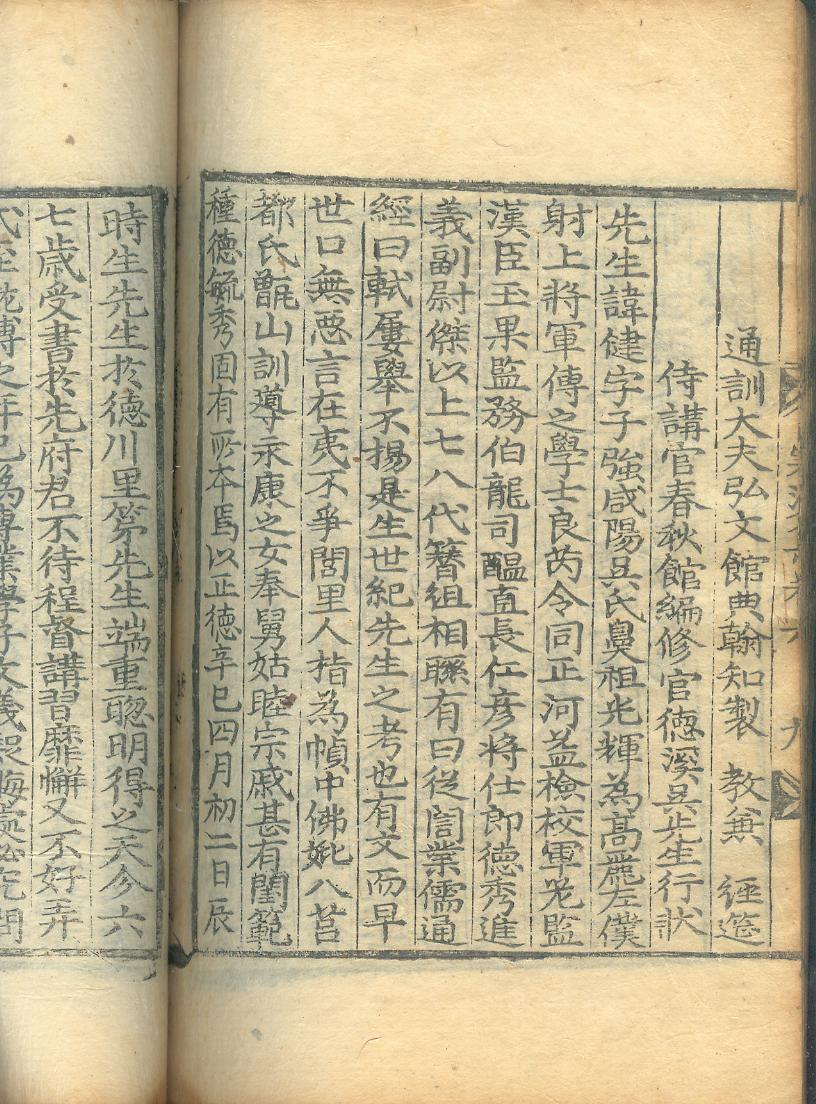 通訓大夫弘文館典翰知製 教兼 經筵
侍講官春秋館編修官德溪吳先生行狀
先生諱健字子強咸陽吳氏鼻祖光輝為高麗左僕
射上將軍傳之學士良芮令同正河益檢校軍器監
漢臣玉果監務伯龍司醞直長仁彥將仕郎德秀進
義副尉傑以上七八代簪組相聯有曰從誾業儒通
經曰軾屢舉不揚是生世紀先生之考也有文而早
世口無惡言在夷不爭閭里人指為幀中佛妣八莒
都氏甑山訓導永康之女奉舅姑睦宗戚甚有閨範
種德毓秀固有所本焉以正德辛巳四月初二日辰
時生先生於德川里第先生端重聰明得之天分六
七歲受書於先府君不待程督講習靡懈又不好弄